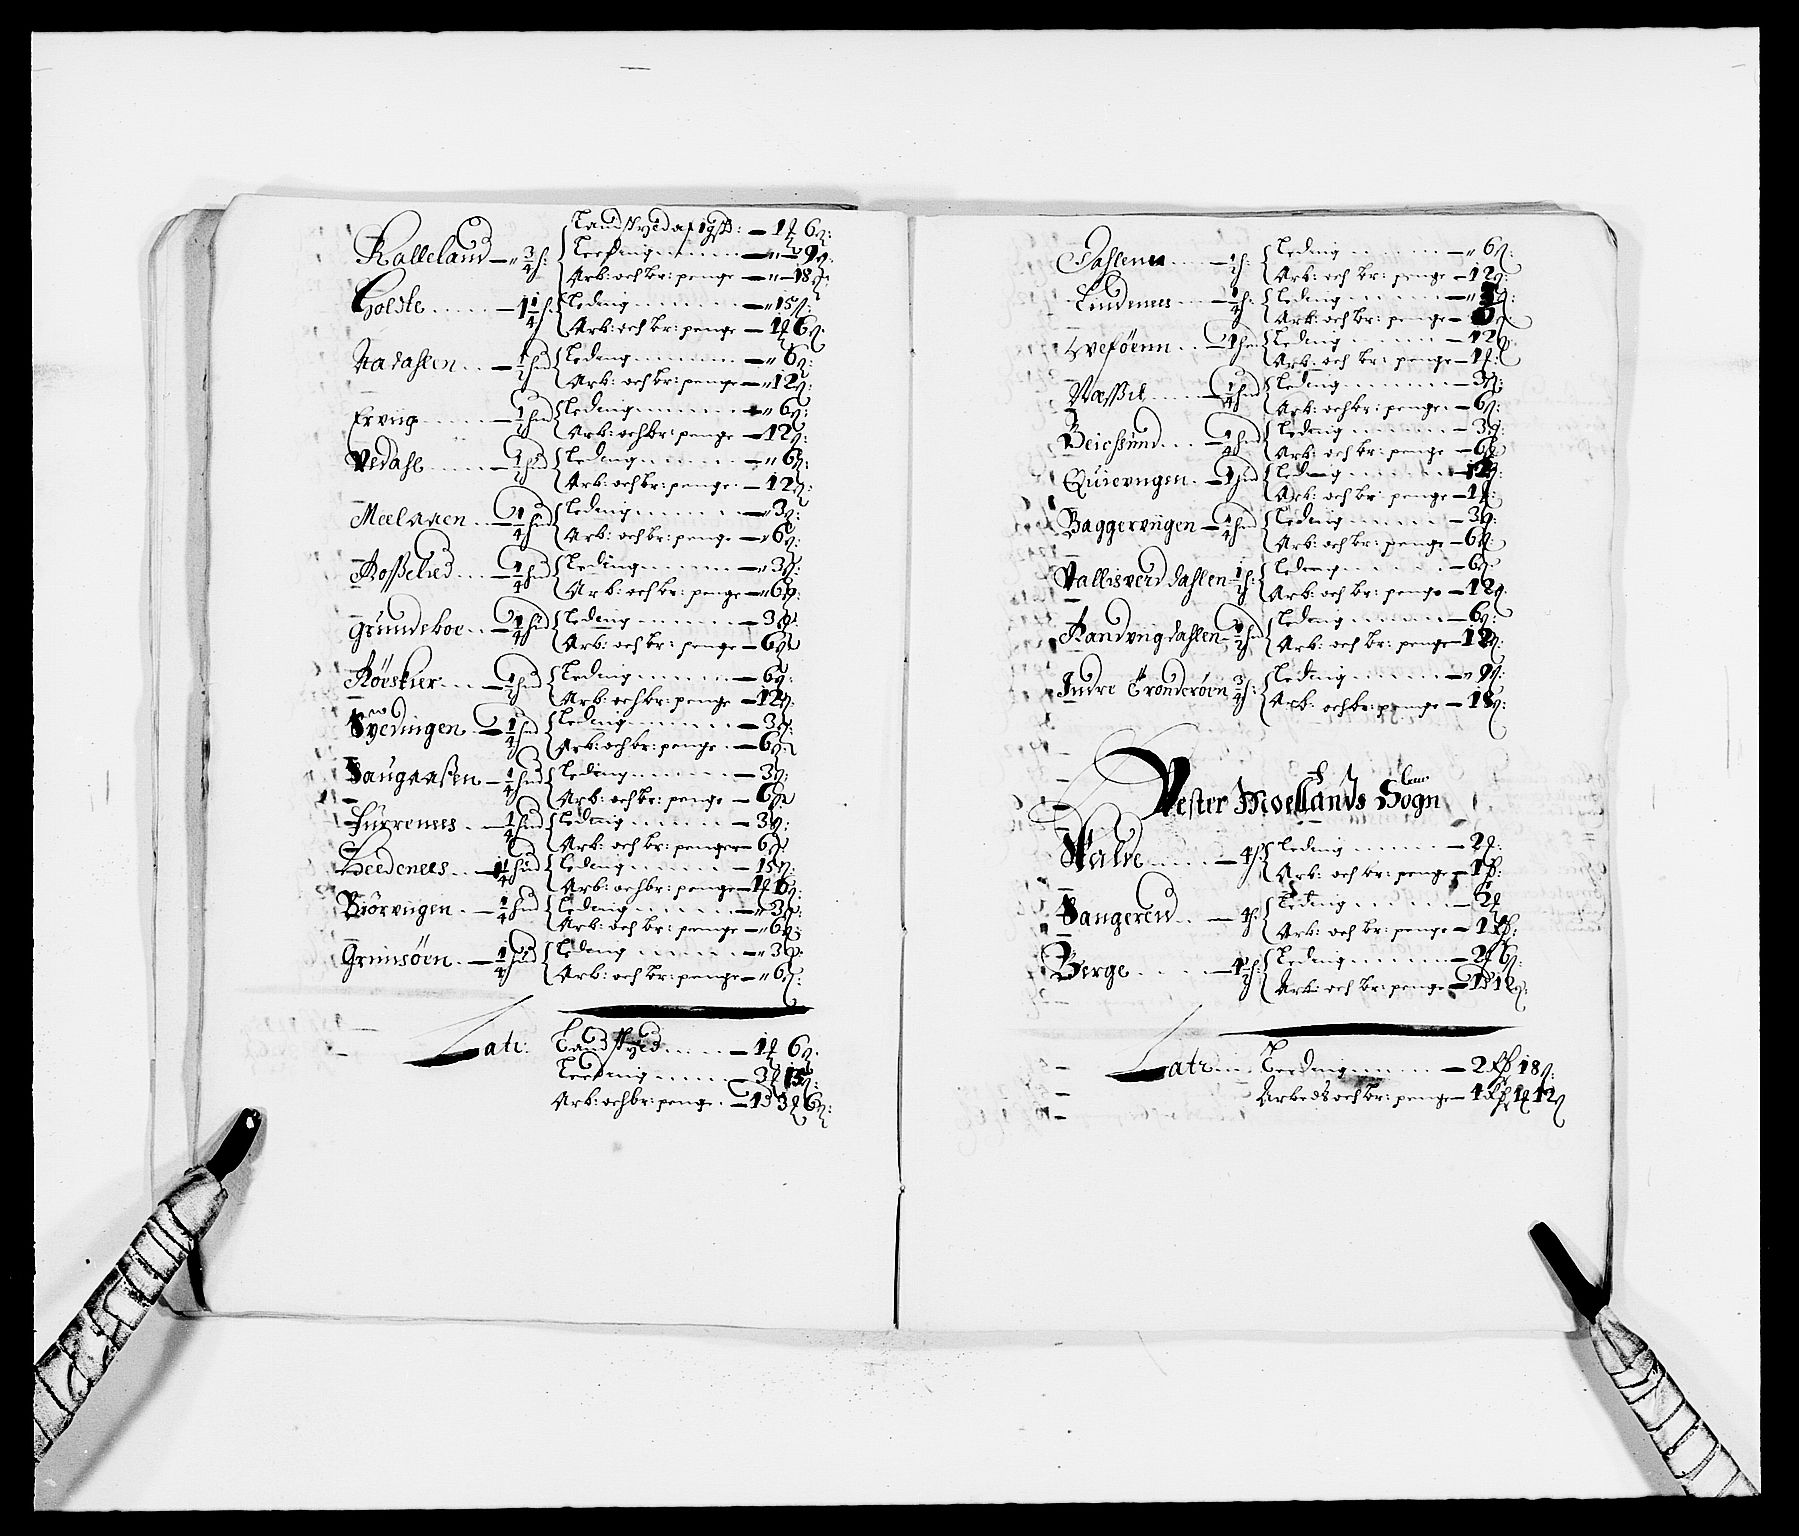 Landskyed af 1 gsk: — 1 ʒ 6 ẞ:
Kalleland — " 3/4 h: Leeding — " — 9 ẞ:
Arb: och br: penge — " — 18 ẞ:
Holdte — 1 1/4 h: Leding — " 15 ẞ:
Arb: och br: penge — 1 ʒ 6 ẞ:
Aadahlen — 1/2 hud Leding — " 6 ẞ:
Arb: och br: penge — " 12 ẞ:
Erving — 1/2 hud Leding — " 6 ẞ:
Arb: och br: penge — 12 ẞ:
Vedahl — 1/2 hud Leding — " 6 ẞ:
Arb: och br: penge — 12 ẞ:
Meelaaen — 1/4 hud Leding — " 3 ẞ:
Arb: och br: penge — " 6 ẞ:
Roßelied — 1/4 hud Leding — " 3 ẞ:
Arb: och br: penge — " 6 ẞ:
Grundeboe — 1/4 hud Leding — 3 ẞ:
Arb: och br: penge — 6 ẞ:
Röeskier — 1/2 hud Leding — 6 ẞ:
Arb: och br: penge — 12 ẞ:
1/4 hud Leding — 3 ẞ:
Arb: och br: penge — 6 ẞ:
Saugaaßen — 1/4 hud Leding — 3 ẞ:
Arb: och br: penge — 6 ẞ:
Furrenees — 1/4 hud Leding — 3 ẞ:
Arb: och br: penger — 6 ẞ:
Heedenees — 1 1/4 hud Leding — 15 ẞ:
Arb: och br: penge — 1 ʒ 6 ẞ:
Biörvngen — 1/4 hud Leding — " 3 ẞ:
Arb: och br: penge — " 6 ẞ:
Grimsöen — 1/4 hud Leding — " 3 ẞ:
Arb: och br: penge — " 6 ẞ:
Latr: Landskyed — 1 ʒ 6 ẞ:
Leeding — 3 ʒ 15 ẞ:
Arb: och br: penge — 1 d 3 ʒ 6 ẞ:
Dahlenn — 1/2 h: Leding — " 6 ẞ:
Arb: och br: penge — 12 ẞ:
Lindenees — 1/4 h: Leding — " 3 ẞ:
Arb: och br: penge — 6 ẞ:
1 hud Leding — 12 ẞ:
Arb: och br: penge — 1 ʒ:
Næßit — 1/4 hud Leding — 3 ẞ:
Arb: och br: penge — 6 ẞ:
Beiehsund — 1/4 hud Leding — 3 ẞ:
Arb: och br: penge — 6 ẞ:
Quievngen — 1 hud Leding — 12 ẞ:
Arb: och br: penge — 1 ʒ:
Baggervngen — 1/4 hud Leding — 3 ẞ:
Arb: och br: penge — 6 ẞ:
Vallisverd dahlen — 1/2 h: Leding — 6 ẞ:
Arb: och br: penge — 12 ẞ:
Randvig dahlen — 1/2 hud Leding — 6 ẞ:
Arb: och br: penge — 12 ẞ:
Indre Tronderöen 3/4 h: Leding — " 9 ẞ:
Arb: och br: penge — 18 ẞ:
Vester Moellands Sogn
4 h: Leding — 2 ʒ:
Arb: och br: penge — 1 d:
Saugereid — 4 h: Leding — 2 ʒ
Arb: och br: penge — 1 d:
Berge — 4 1/2 h: Leding — 2 ʒ 6 ẞ:
Arb: och br: penge — 1 d 12 ẞ:
Latr: Leeding — 2 d 18 ẞ:
Arbeds och br: penge — 4 d 1 ʒ 12 ẞ